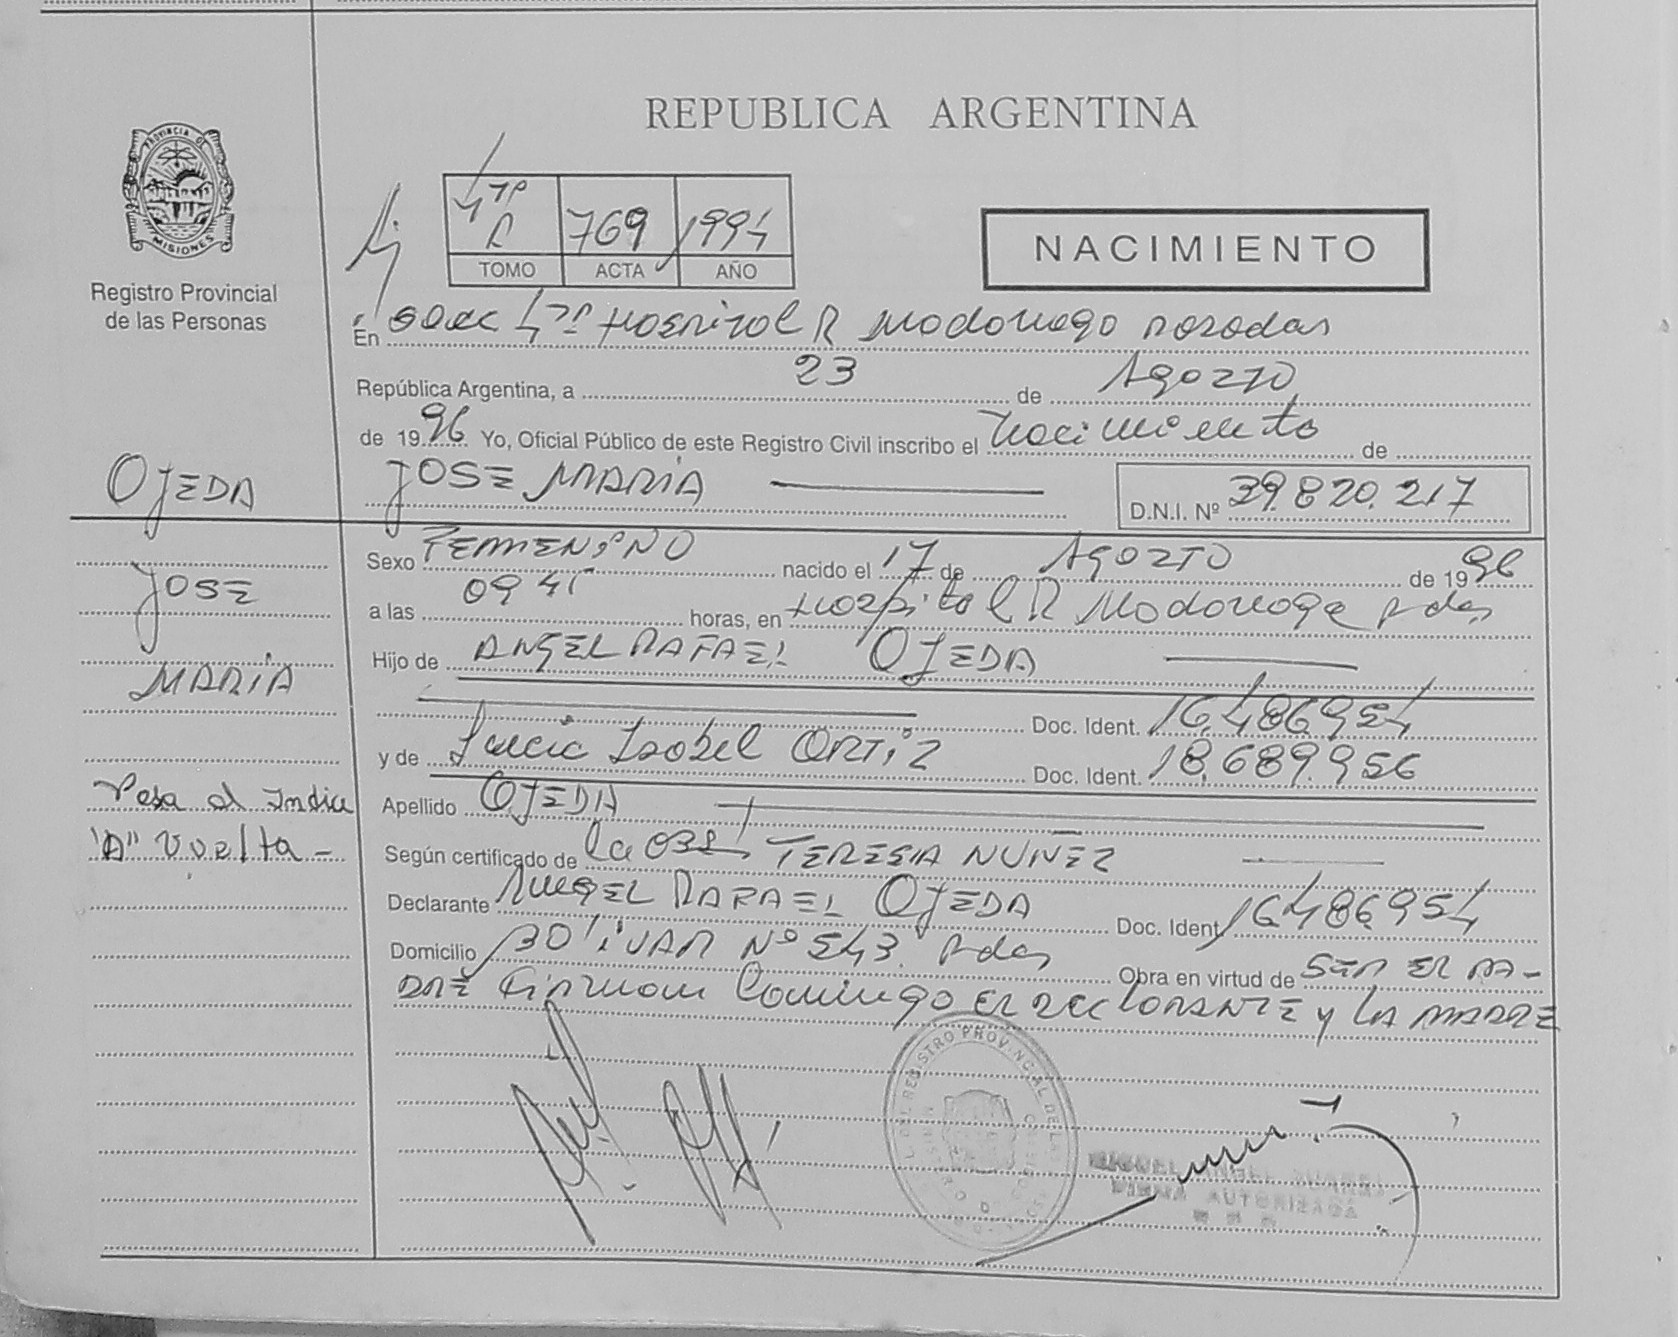 REPUBLICA ARGENTINA
PROVINCIA DE
MISIONES
Registro Provincial
de las Personas
769 1994
TOMO ACTA AÑO
NACIMIENTO
En Hospital R Madariaga Posadas
República Argentina, a 23 de Agozto
de 1996 Yo, Oficial Público de este Registro Civil inscribo el nacimiento de
OJEDA
JOSE MARIA
D.N.I. Nº 39.820.217
JOSE
MARIA
Sexo FEMENINO nacido el 17 de AGOZTO de 1996
a las 09 45 horas, en Hospital R Madariaga Pdas
Hijo de ANGEL RAFAEL OJEDA
Doc. Ident. 16.486.954
y de Lucia Isabel ORTIZ Doc. Ident. 18.689.956
Pasa al Indice
"A" Vuelta -
Apellido OJEDA
Según certificado de la OBST TERESA NUÑEZ
Declarante ANGEL RAFAEL OJEDA Doc. Ident. 16486954
Domicilio BOLIVAR Nº 543. Pdas Obra en virtud de SER EL PA-
DRE Firman Conmigo EL DECLARANTE y LA MADRE
REGISTRO PROVINCIAL DE LAS
MIGUEL ANGEL SUAREZ
FIRMA AUTORIZADA